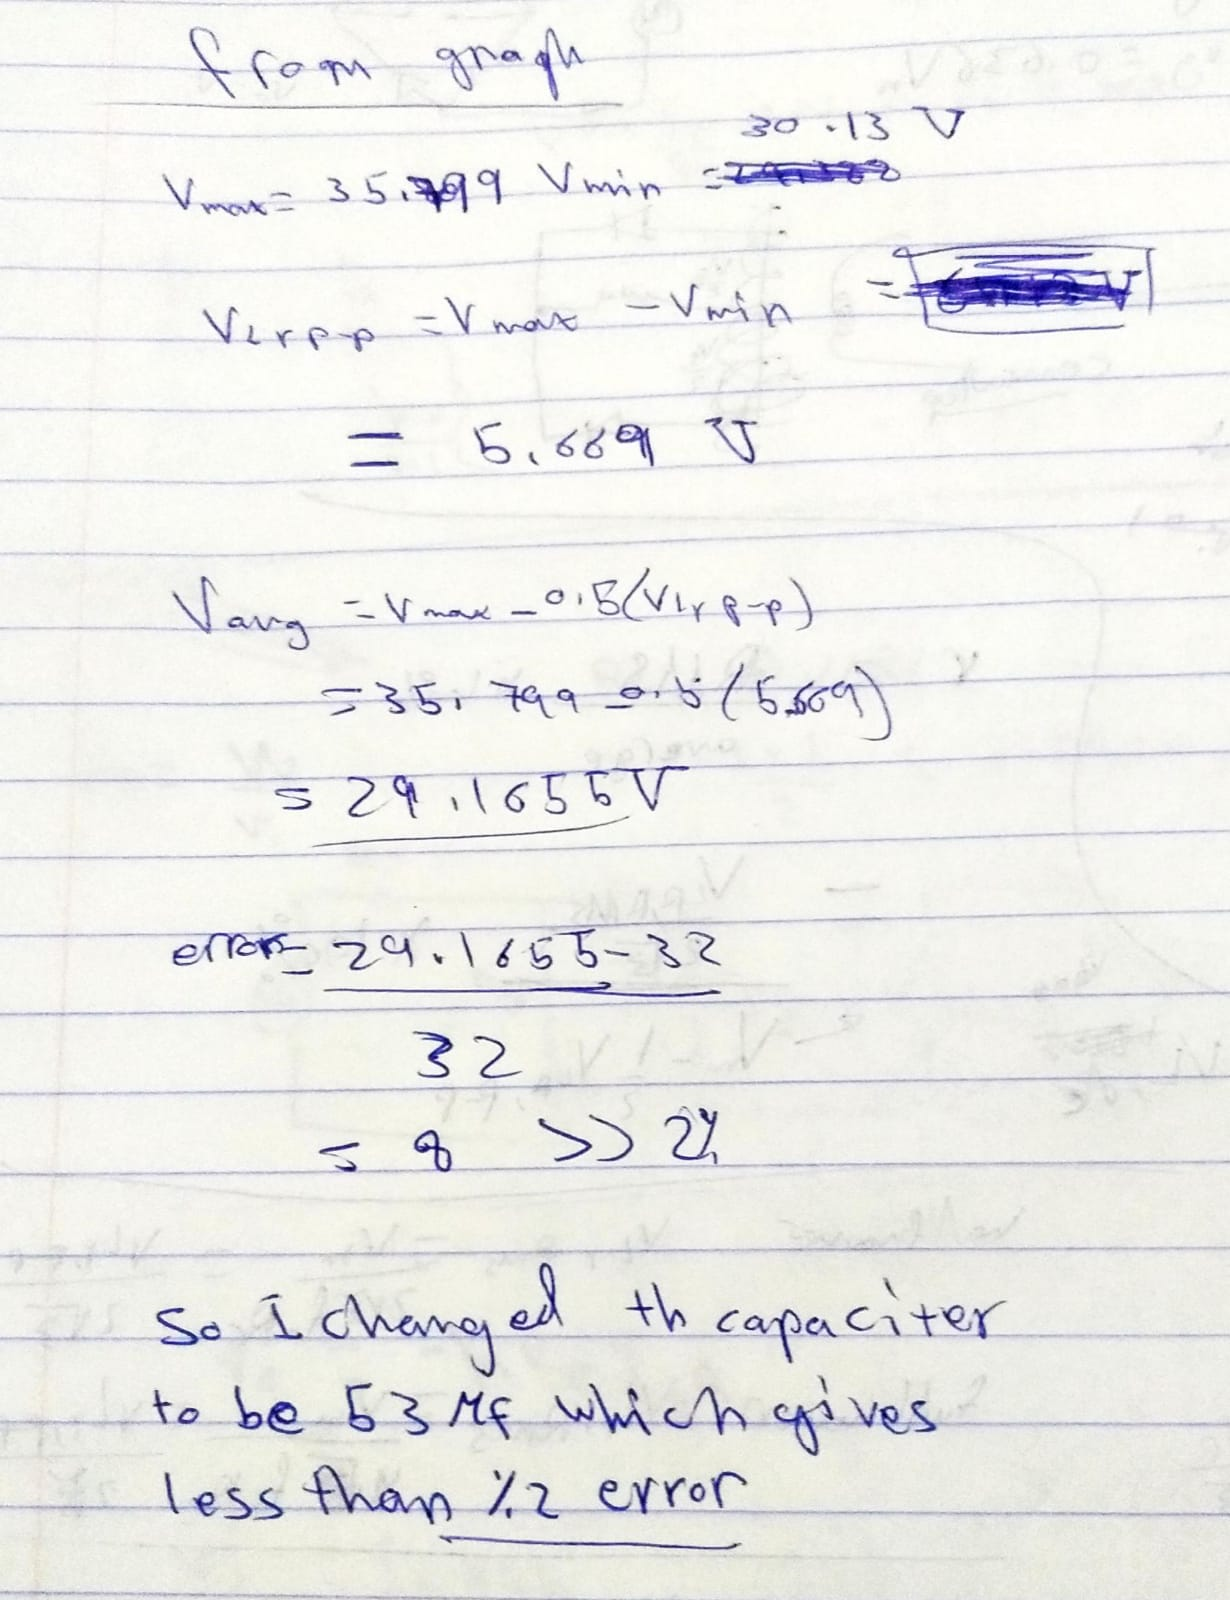 from graph
30.13 V
Vmax= 35.799 Vmin =
VLrp-p =Vmax -Vmin =
= 5.669 V
Vavg =Vmax-0.5(VLrp-p)
=35.799-0.5(5.669)
= 29.1655V
error= 29.1655-32
32
= 8 >> 2%
So I changed th capaciter
to be 53 Mf which gives
less than %2 error